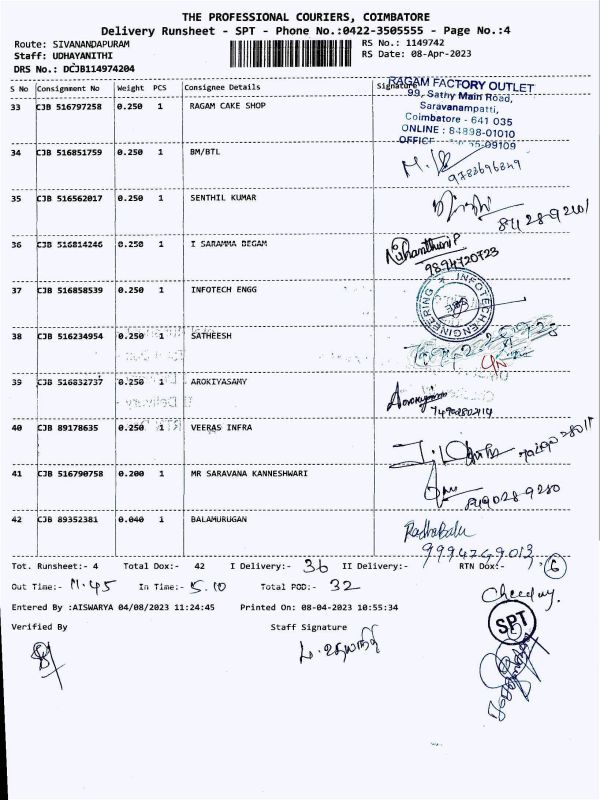 THE PROFESSIONAL COURIERS, COIMBATORE
Delivery Runsheet - SPT - Phone No.:0422-3505555 - Page No.:4
Route: SIVANANDAPURAM RS No.: 1149742
Staff: UDHAYANITHI RS Date: 08-Apr-2023
DRS No.: DCJB114974204
S No Consignment No Weight PCS Consignee Details Signature
RAGAM FACTORY OUTLET
99, Sathy Main Road,
Saravanampatti,
Coimbatore - 641 035
ONLINE : 84898-01010
OFFICE
33 CJB 516797258 0.250 1 RAGAM CAKE SHOP
34 CJB 516851759 0.250 1 BM/BTL
35 CJB 516562017 0.250 1 SENTHIL KUMAR
36 CJB 516814246 0.250 1 I SARAMMA BEGAM
9894720723
37 CJB 516858539 0.250 1 INFOTECH ENGG
INFOTECH ENGINEERING
38 CJB 516234954 0.250 1 SATHEESH
39 CJB 516832737 0.250 1 AROKIYASAMY
40 CJB 89178635 0.250 1 VEERAS INFRA
41 CJB 516790758 0.200 1 MR SARAVANA KANNESHWARI
42 CJB 89352381 0.040 1 BALAMURUGAN
RadhaBalu
Tot. Runsheet:- 4 Total Dox:- 42 I Delivery:- 36 II Delivery:- RTN Dox:- 6
Out Time:- 11.45 In Time:- 5.10 Total POD:- 32
Entered By :AISWARYA 04/08/2023 11:24:45 Printed On: 08-04-2023 10:55:34
Verified By Staff Signature
SPT